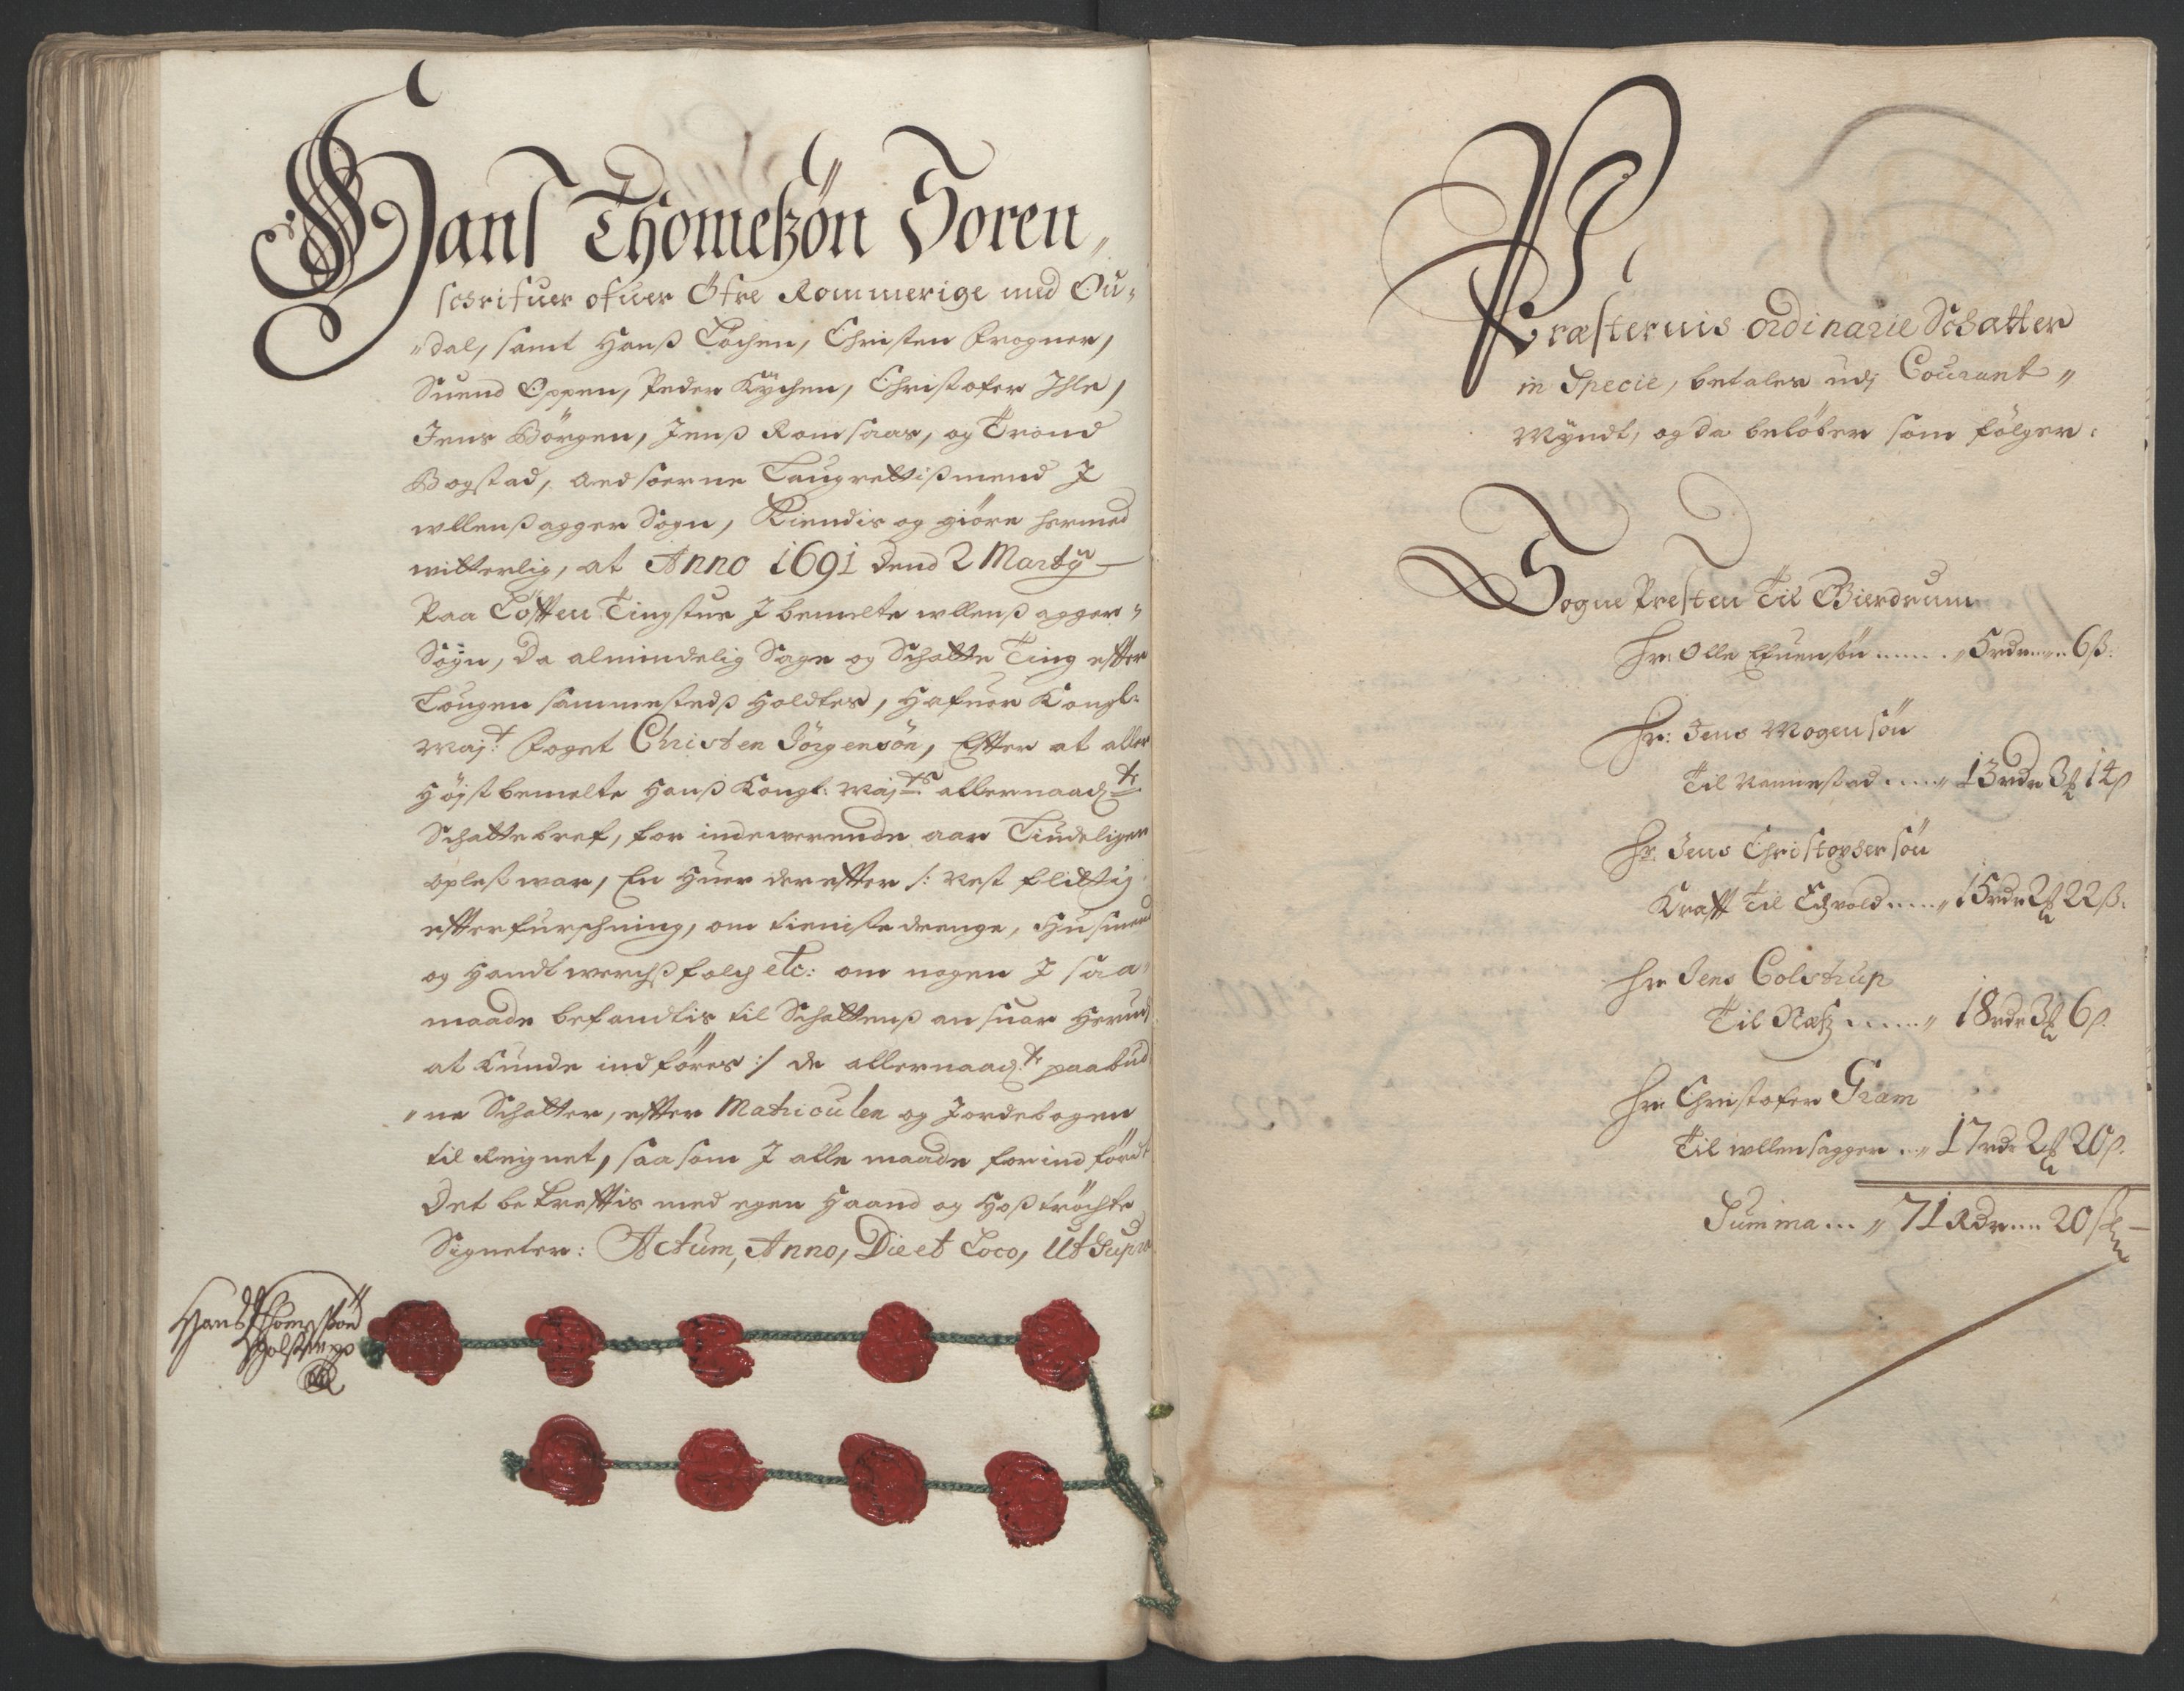 Hans Thomeßön Soren„
schrifuer ofuer Öfre Rommerige med Ou„
„dal, samt Hanß Lochen, Christen Frogner,
Suend Oppen, Peder Kÿchen, Christofer Ihle,
Jens Börgen, Jenß Romsaas, og Trond
Bogstad, Aedsoerne Laugrettißmend J
wllenßagger Sogn, Kiendis og giöre hermed
witterlig, at Anno 1691 dend 2 Martÿ
Paa Löften Tingstue J bemelte wllenß agger„
Sogn, da almindelig Sage og Schatte Ting efter
Lougen sammestedß Holdtes, Hafuer Kongl:
Maj:t Foget Christen Jörgensön, Efter at aller
Höjstbemelte Hanß Kongl: Maj:ts allernaad:te
Schattebref, for indewerende aar Tÿdeligen
oplest war, En Huer derefter /: Nest flittig
efterfurschning, om tienistedrenge, Husmend
og Handtwerchßfolch etc: om nogen J saa„
maade befandtis til Schattenß ansuar Herudj
at kunde indföres :/ de allernaad:te paabud„
„ne Schatter, efter Matriculen og Jordebogen
til Reignet, saa som J alle maade forindfört
Det bekreftis med egen Haand og Hoßtröchte
Signeter: Actum, Anno, Die et Loco, Ut Supra
Hans Thomesßön
Holstrup
Mst
Præsternis ordinarie Schatter
in Specie, betales udj Courant„
Mÿndt, og da belöber som fölger:
Sogne Presten Til Gierdrum
Hr: Olle Efuensön ...... „5 rdr „„ 6 ß:
Hr: Jens Mogensön
Til Nannestad .... „13 rdr 3 ₰ 14 ß
Hr: Jens Christophersön
Kraft Til Edzvold .... „15 rdr 2 ₰ 22 ß:
Hr Jens Colstrup
Til Næß ..... „18 rdr 3 ₰ 6 ß.
Hr: Christofer Gram
Til wllensagger ... „17 rdr 2 ₰ 20 ß.
Summa ... „71 Rdr „„ 20 ß